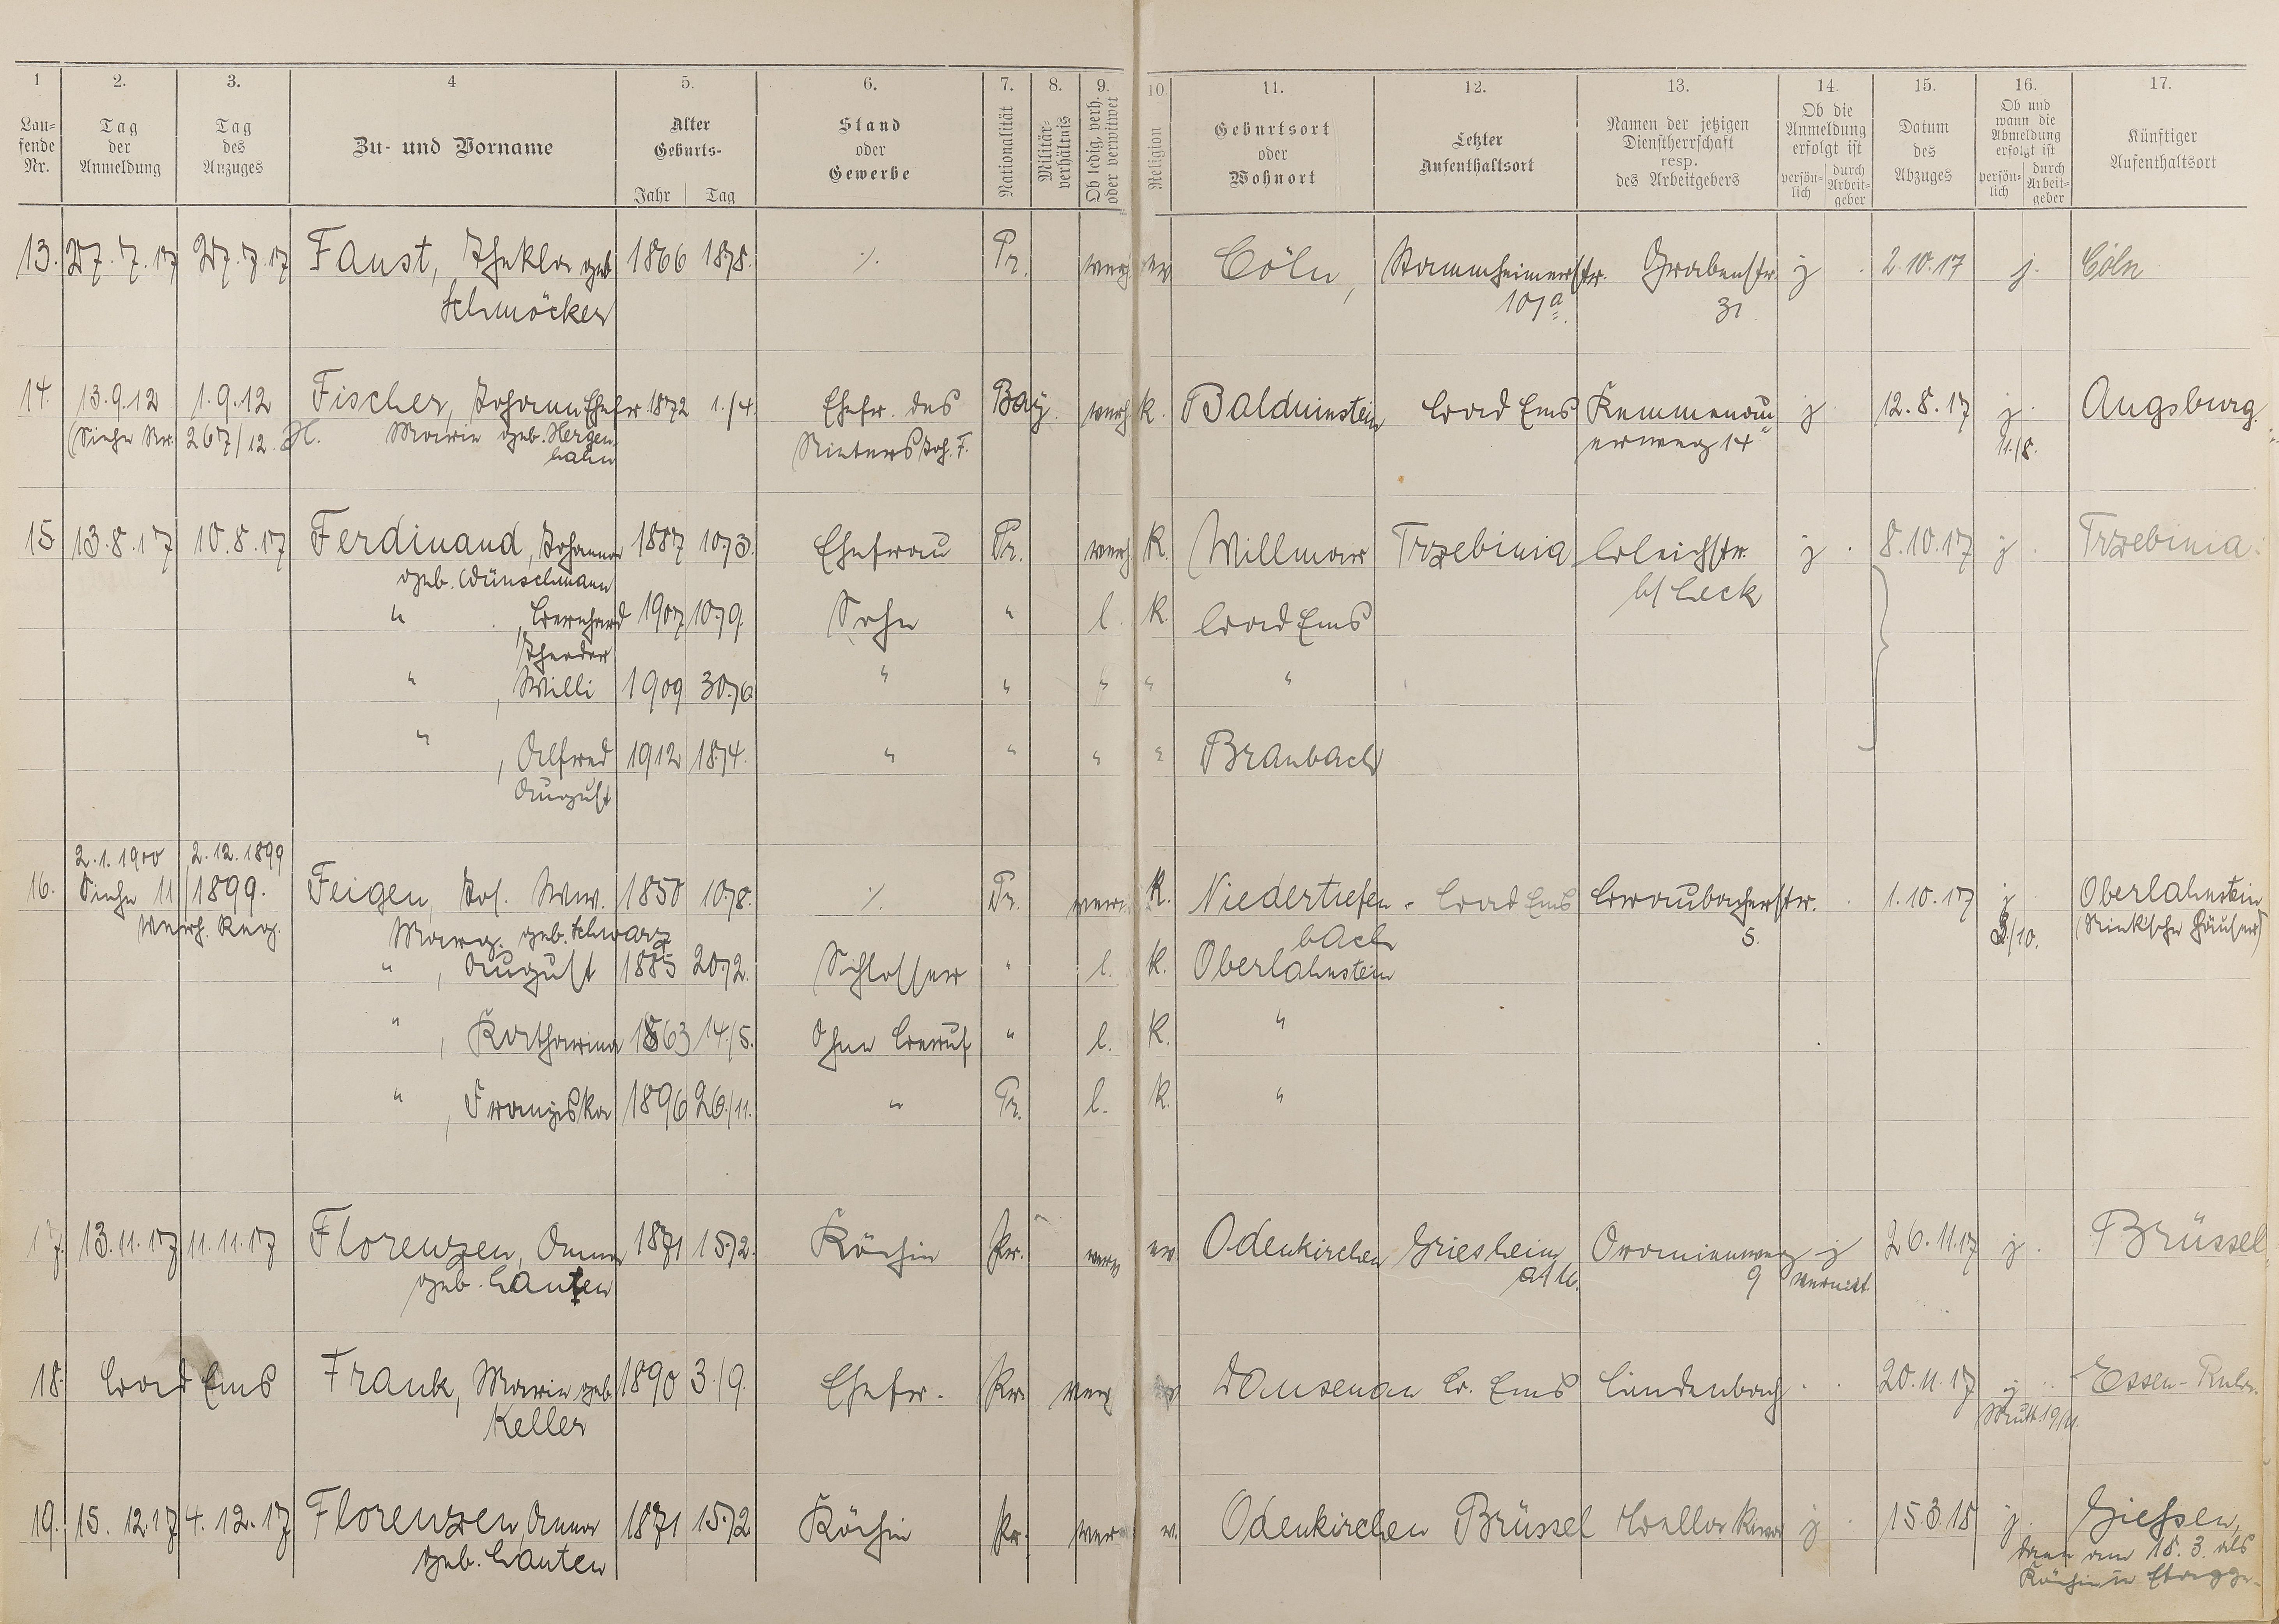 1 2. 3. 4 5. 6. 7. 8. 9. 10 11. 12. 13. 14. 15. 16. 17.
Laufende Nr.
Tag der Anmeldung
Tag des Anzuges
Zu- und Vorname
Alter Geburts-
Jahr Tag
Stand oder Gewerbe
Nationalität
Militärverhältnis
Ob ledig, verh. oder verwitwet
Religion
Geburtsort oder Wohnort
Letzter Aufenthaltsort
Namen der jetzigen Dienstherrschaft resp. des Arbeitgebers
Ob die Anmeldung erfolgt ist
persönlich durch Arbeitgeber
Datum des Abzuges
Ob und wann die Abmeldung erfolgt ist
persönlich durch Arbeitgeber
Künftiger Aufenthaltsort
13. 27.7.17 27.7.17 Faust, Thekla geb. 1866 18/8. ./. Pr. verh. ev Cöln, Stammheimerstr. Grabenstr. j . 2.10.17 j. Cöln
Schmöcker 101a. 31
14. 13.9.12 1.9.12 Fischer, Johann Ehefr 1872 1./4. Ehefr. des Bay. verh k. Balduinstein Bad Ems Kemmenau j. 12.8.17 j. Augsburg.
(Siehe Nr. 267/12. H. Marie geb. Hergen- Joh. F. erweg 14 11./8.
hahn
15 13.8.17 10.8.17 Ferdinand, Johanna 1887 10/3. Ehefrau Pr. verh k. Willmar Trzebinia Bleichstr. j . 8.10.17 j . Trzebinia.
geb. Wünschmann b/ Leck
" , Bernhard 1907 10/9. Sohn " l. k. Bad Ems
Theodor
" , Willi 1909 30/6 " " " " "
" , Alfred 1912 18/4. " " " " Braubach
August
2.1.1900 2.12.1899
16. Siehe 11/1899. Feigen, Jos. Wwe. 1850 10/8. ./. Pr. verw. k. Niedertiefen- Bad Ems Braubacherstr. . 1.10.17 j Oberlahnstein
Verh. Reg. Marg. geb. Schwarz bach 5. /10.
" , August 1885 20/2. Schlosser " l. k. Oberlahnstein
" , Katharina 1863 14./5. Ohne Beruf " l. k. "
" , Franziska 1896 26./11. " Pr. l. k. "
17. 13.11.17 11.11.17 Florenzen, Anna 1871 15/2. Köchin Pr. verw ev. Odenkirchen Griesheim j 26.11.17 j. Brüssel
geb. Lauten a/M. 9
18. Bad Ems Frank, Marie geb. 1890 3./9. Ehefr. Pr. verh Dausenau B. Ems Lindenbach . . 20.11.17 j . Essen-Ruhr.
Keller 19/11.
19. 15.12.17 4.12.17 Florenzen, Anna 1871 15/2 Köchin Pr. verw. Odenkirchen Brüssel j . 15.3.18 j. Giessen,
geb. Lauten dann am 18.3. als
Köchin in